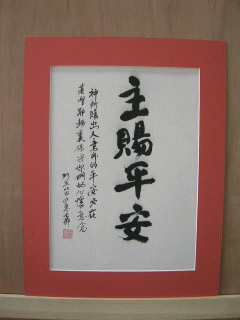 主賜平安
神所賜出人意外的平安必在
基督耶穌裏保守你們的心懷意念